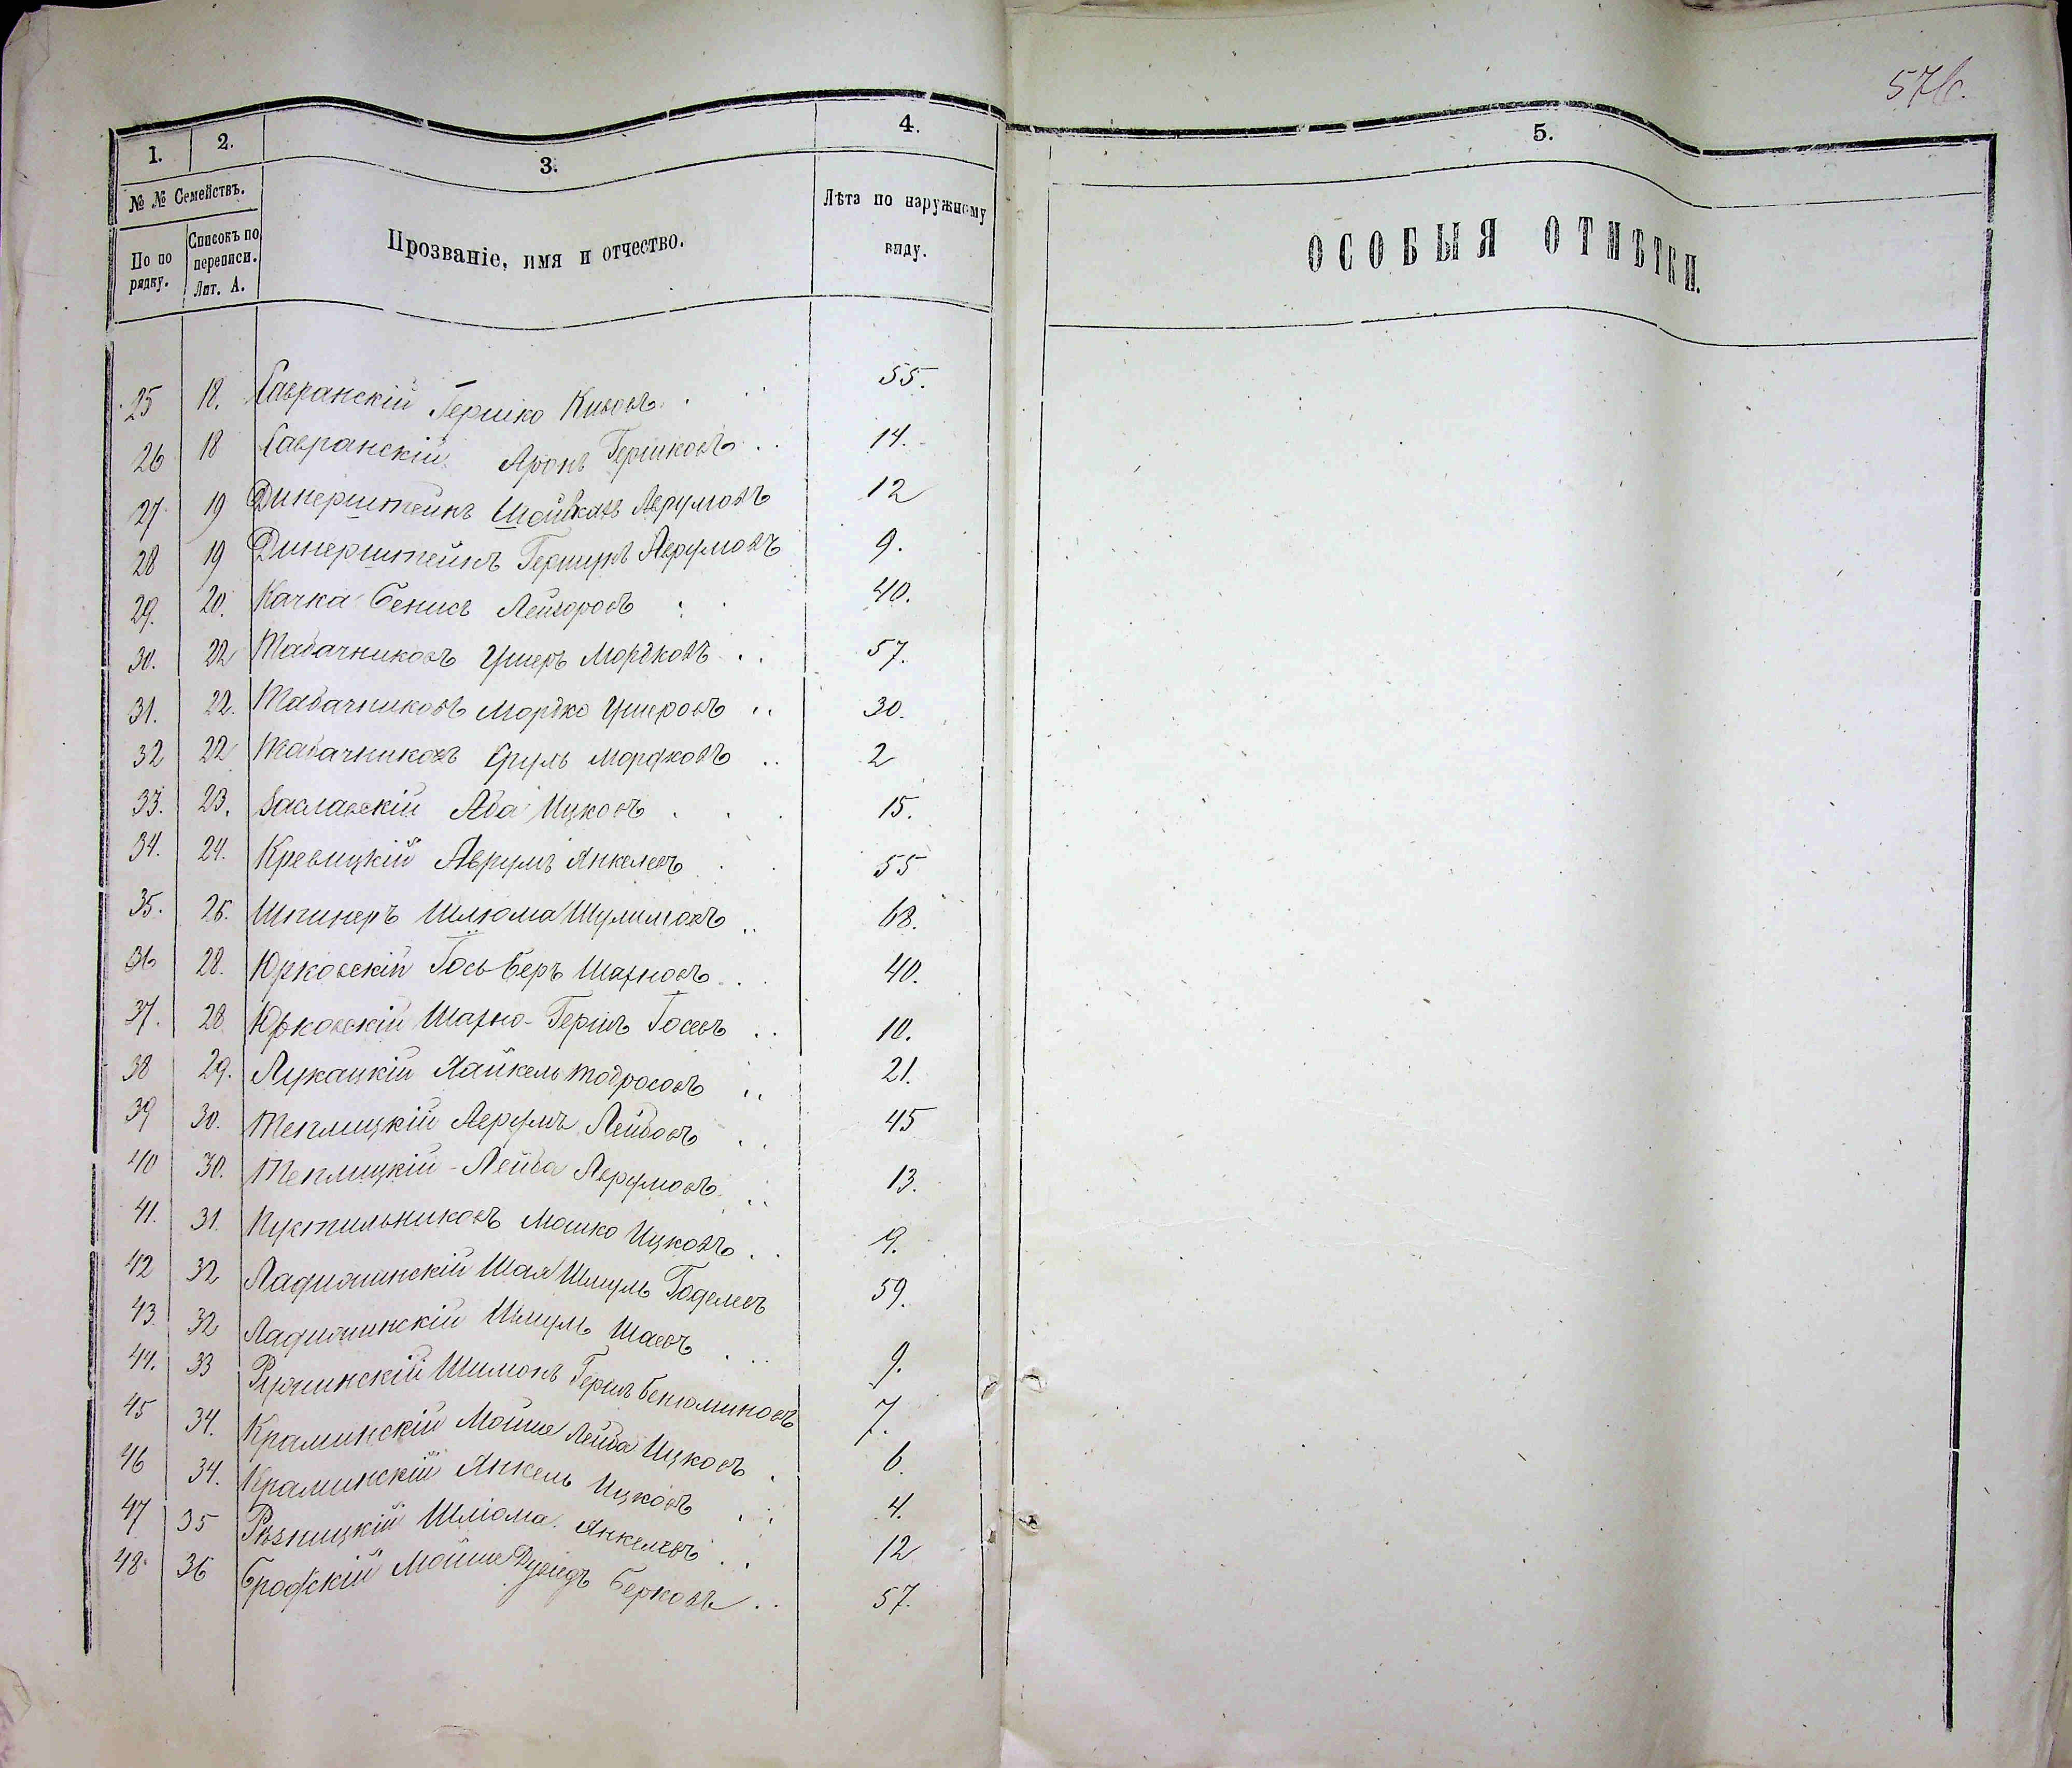 576.
1. 2. 3. 4. 5.
№ № Семействъ.
По по рядку.
Списокъ по переписи. Лит. А.
Прозваніе, имя и отчество.
Лѣта по наружному виду.
ОСОБЫЯ ОТМѢТКИ.
25 18. Савранскій Гершко Кивовъ 55.
26 18 Савранскій Аронъ Гершковъ 14.
27 19 Динерштейнъ Аврумовъ 12
28 19 Динерштейнъ Гершунъ Аврумовъ 9.
29. 20. Качка Бенисъ Лейзоровъ 40.
30. 22 Табачниковъ Ушеръ Мордковъ 57.
31. 22. Табачниковъ Мордко Ушеровъ 30.
32 22 Табачниковъ Сруль Мордковъ 2
33. 23. Заславскій Аба Ицковъ 15.
34. 24. Кревицкій Аврумъ Янкелевъ 55
35. 26. Шпинеръ Шлюома Шулимовъ 68.
36 28. Юрковскій Іось Беръ Шахновъ 40.
37. 28. Юрковскій Шахно-Гершъ Іосевъ 10.
38 29. Лукацкій Хайкель Тодросовъ 21.
39 30. Теплицкій Аврумъ Лейбовъ 45
40 30. Теплицкій-Лейба Аврумовъ 13.
41. 31. Пустильниковъ Мошко Ицковъ 9.
42 32 Ладижинскій Шая Шмуль Годелевъ 59.
43. 32 Ладижинскій Шмуль Шаевъ 9.
44. 33 Шимонъ Гершъ Бенюминовъ 7.
45 34. Краминскій Мойше Лейба Ицковъ 6.
46 34. Краминскій Янкель Ицковъ 4.
47 35 Рѣзницкій Шліома Янкелевъ 12
48. 36 Бродскій Мойше Дувидъ Берковъ 57.